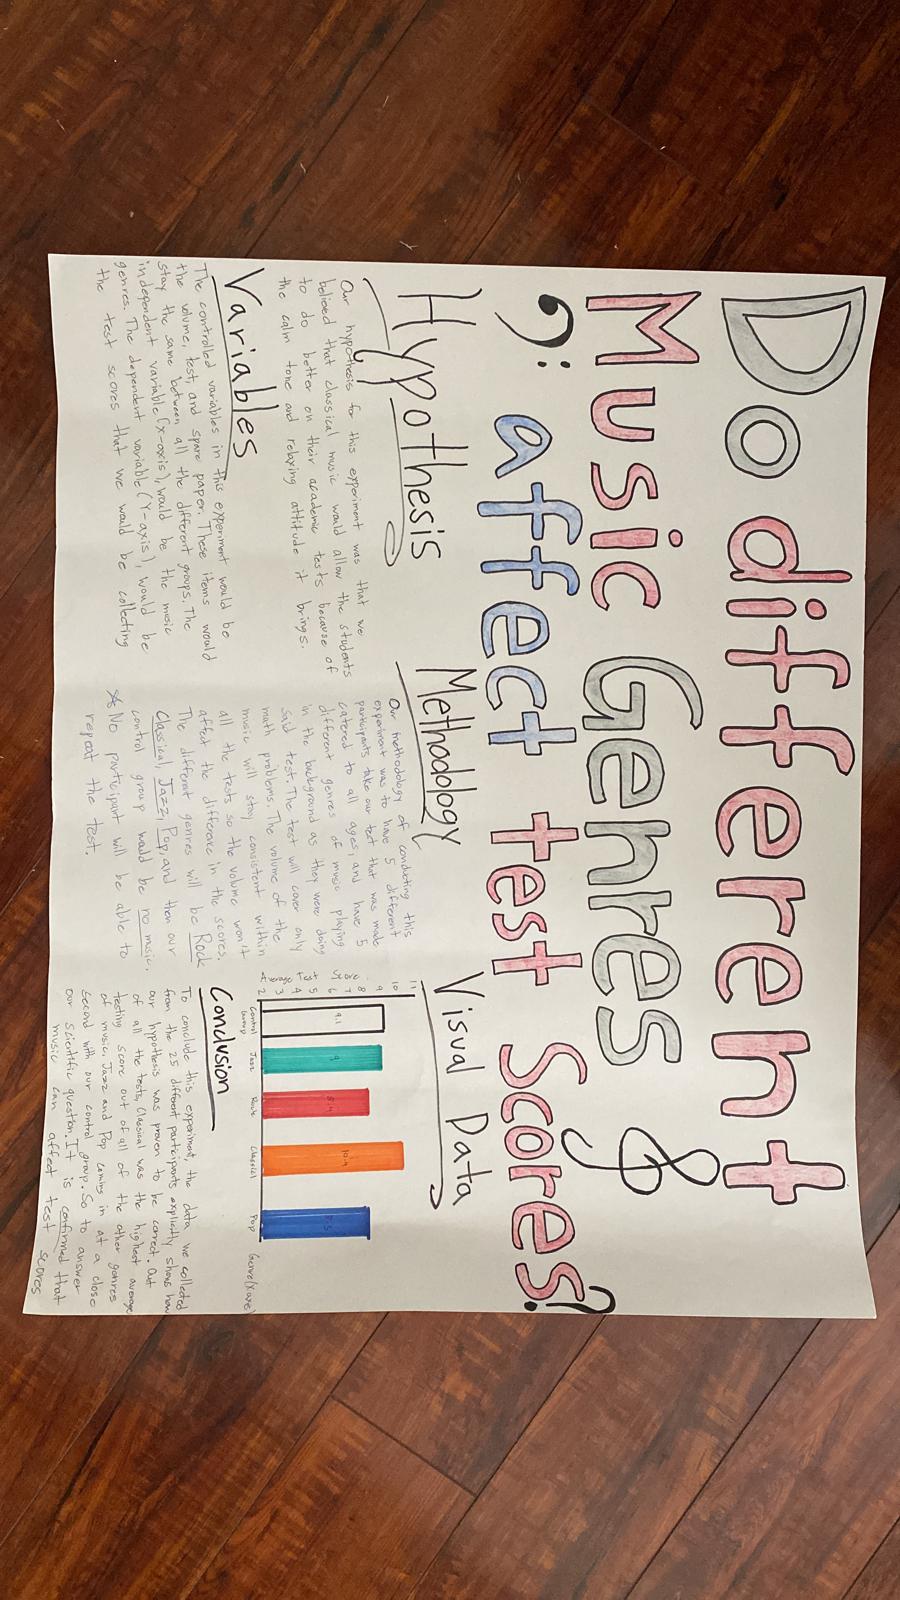 Do different
Music Genres &
affect test Scores?
Hypothesis
Our hypothesis for this experiment was that we
believed that classical music would allow the students
to do better on their academic tests because of
the calm tone and relaxing attitude it brings.
Variables
The controlled variables in this experiment would be
the volume, test, and spare paper. These items would
stay the same between all the different groups. The
independent variable (x-axis), would be the music
genres. The dependent variable (Y-axis), would be
the test scores that we would be collecting
Methodology
Our methodology of conducting this
experiment was to have 5 different
participants take our test that was made
catered to all ages, and have 5
different genres of music playing
in the background as they were doing
said test. The test will cover only
math problems. The volume of the
music will stay consistent within
all the tests so the volume won't
affect the difference in the scores.
The different genres will be Rock
Classical, Jazz, Pop, and then our
control group would be no music.
No participant will be able to
repeat the test.
Visual Data
Average Test Score
11
10
9
8
7
6
5
4
3
2
9.1
9
10.4
Control Group
Jazz
Classical
Pop
Genre (X axe)
Conclusion
To conclude this experiment, the data we collected
from the 25 different participants explicitly shows how
our hypothesis was proven to be correct. Out
of all the tests, Classical was the highest average
testing score out of all of the other genres
of music, Jazz and Pop coming in at a close
second with our control group. So to answer
our scientific question. It is confirmed that
music can affect test scores